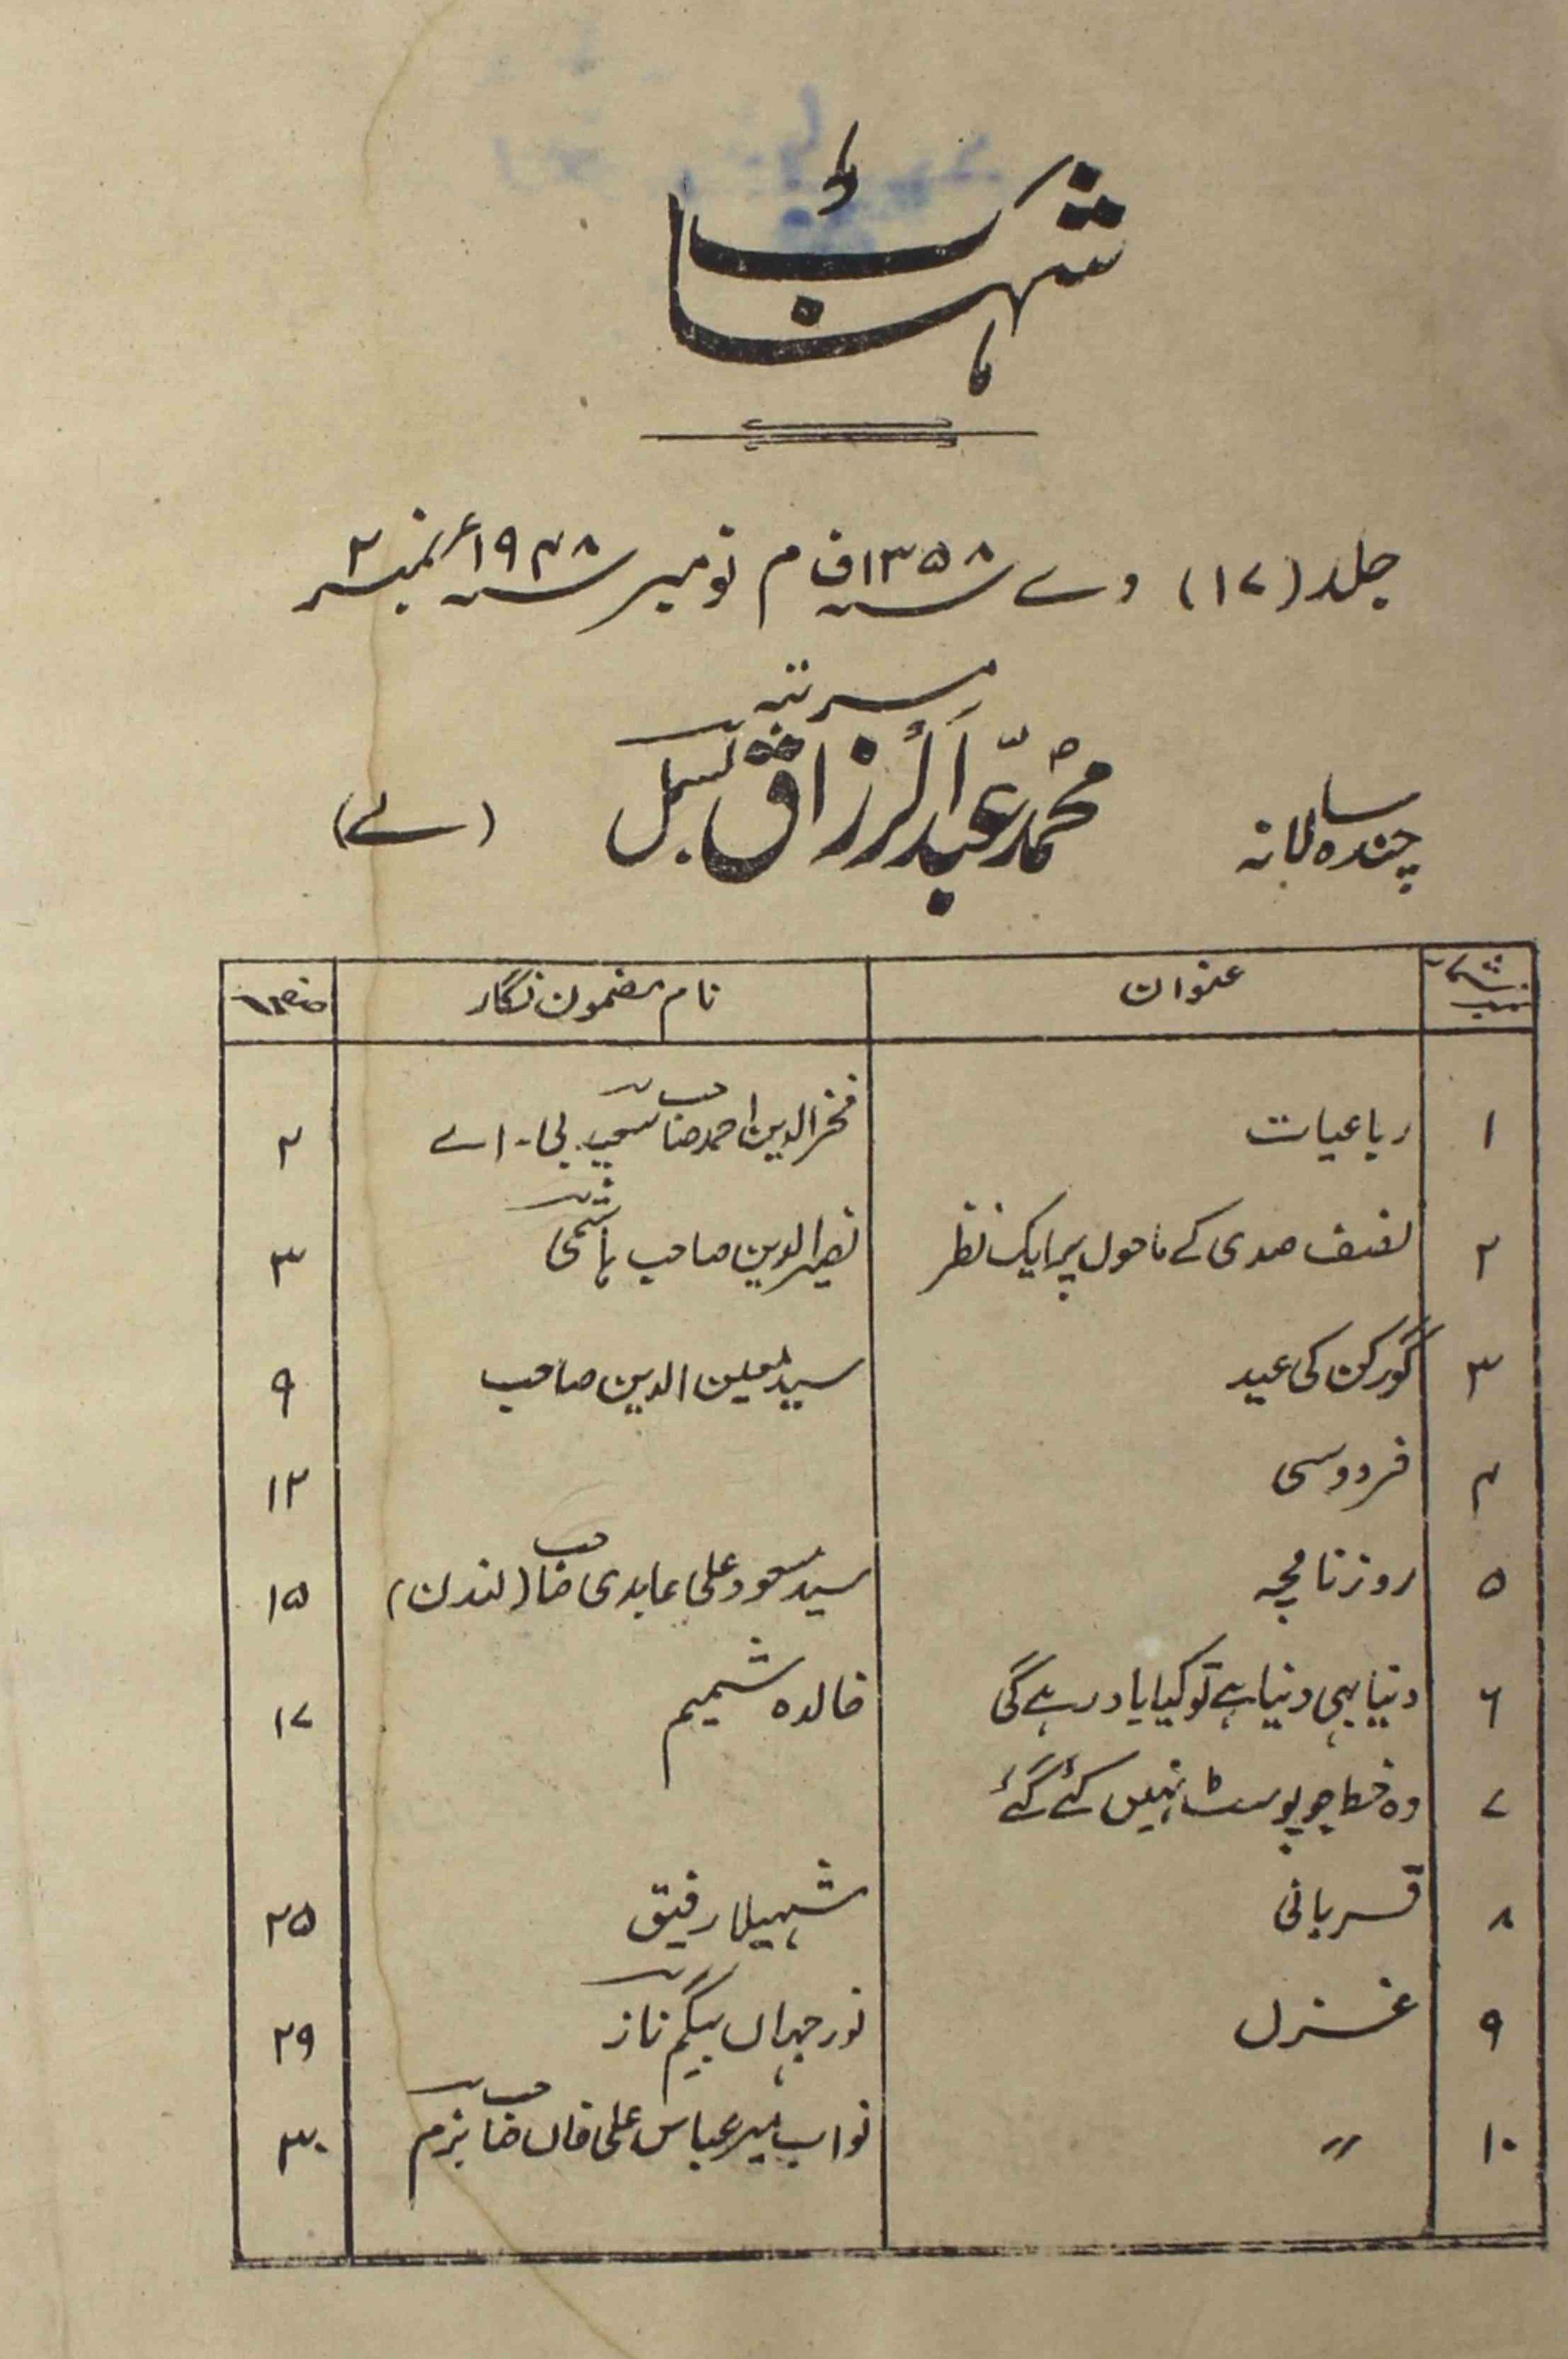 شہاب
جلد (۱۷) دے ۱۳۵۸ف م نومبر ۱۹۴۸ء نمبر ۲
مرتبہ
چندہ سالانہ محمد عبدالرزاق بسمل
نمبر شمار عنوان نام مضمون نگار صفحہ
۱ رباعیات فخرالدین احمد صاحب بی۔اے ۲
۲ نصف صدی کے ماحول پر ایک نظر نصیرالدین صاحب ہاشمی ۳
۳ گورکن کی عید سید معین الدین صاحب ۹
۴ فردوسی ۱۲
۵ روزنامچہ سید مسعود علی عابدی صاحب (لندن) ۱۵
۶ دنیا یہی دنیا ہے تو کیا یاد رہے گی خالدہ شمیم ۱۷
۷ وہ خط جو پوسٹ نہیں کئے گئے
۸ قربانی شہیلا رفیق ۲۵
۹ غزل نور جہاں بیگم ناز ۲۹
۱۰ 〃 نواب میر عباس علی خاں صاحب بزم ۳۰